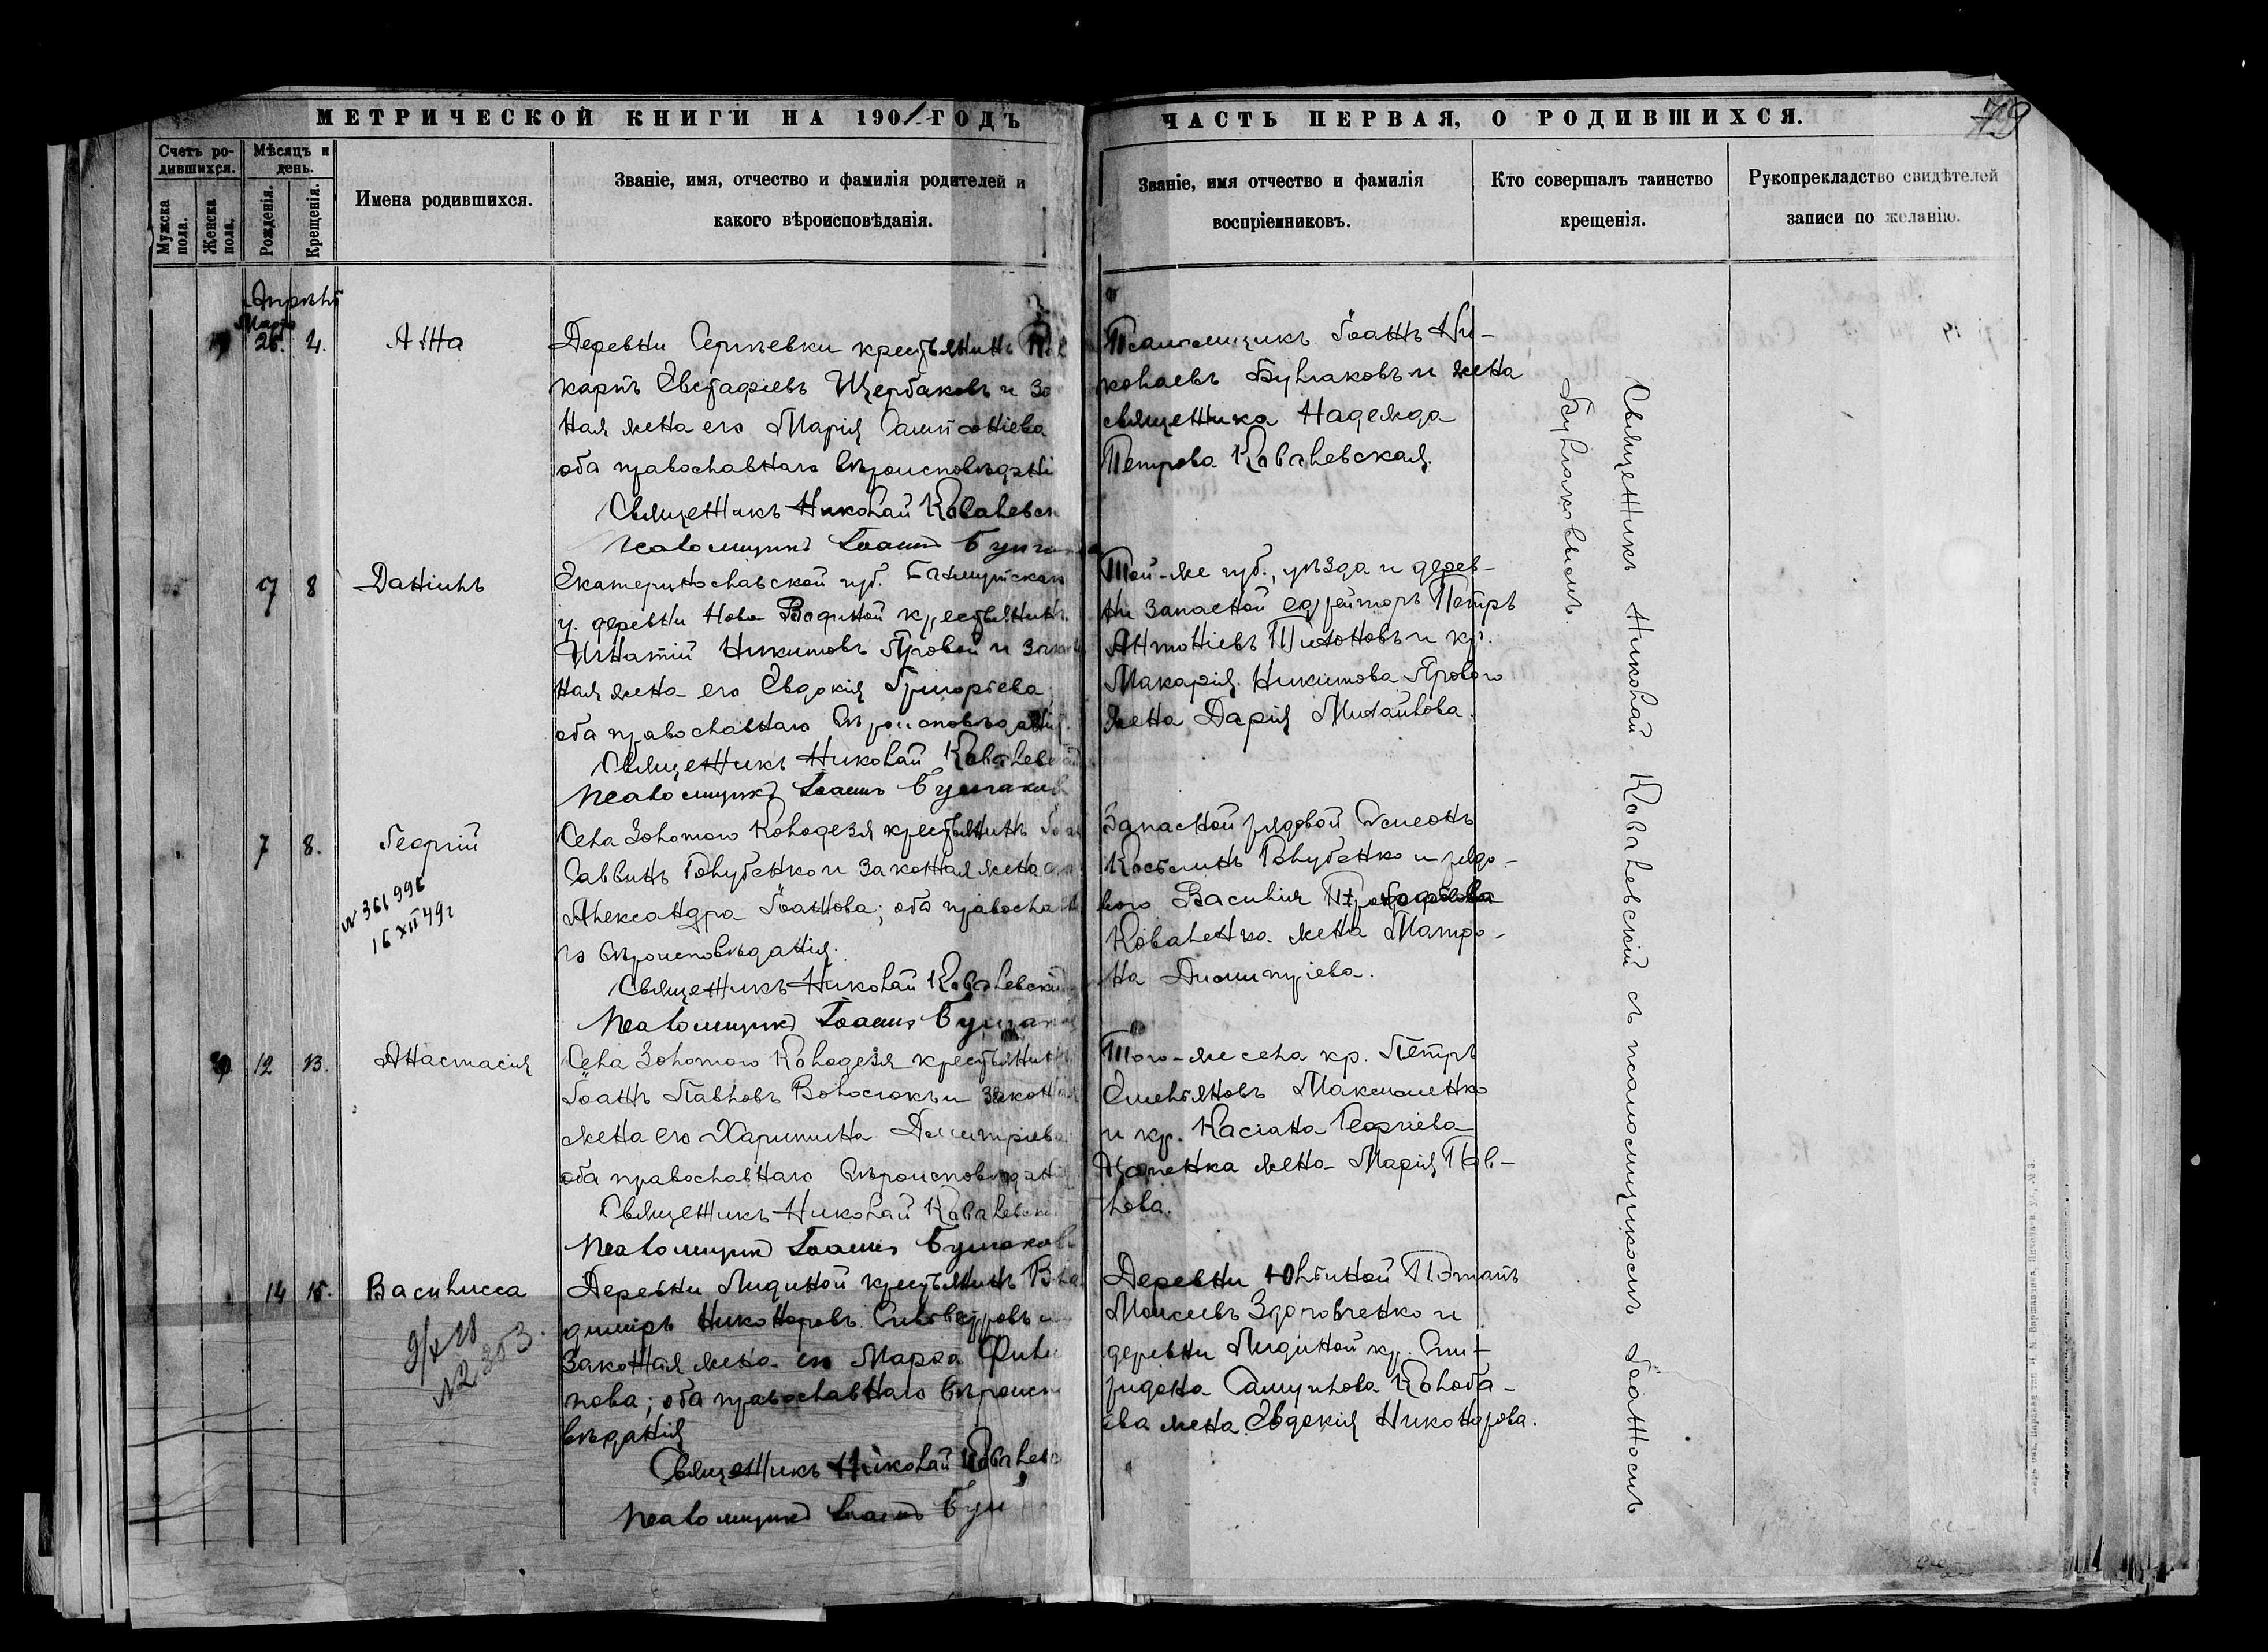 МЕТРИЧЕСКОЙ КНИГИ НА 1901 ГОДЪ
Счетъ ро-
дившихся.
Мѣсяцъ и
день.
Мужска
пола.
Женска
пола.
Рожденія.
Крещенія.
Имена родившихся.
Званіе, имя, отчество и фамилія родителей и
какого вѣроисповѣданія.
Апрѣль
Марта
26. 4. Анна
Деревни Сергѣевки крестьянинъ
карпъ Евстафіевъ Щербаковъ и за
ная жена его Марія Сампсоніева
оба православнаго вѣроисповѣдані
Священникъ Николай Ковалевск
Псаломщикъ Іоаннъ Булгак
7 8 Даніилъ
Екатеринославской губ. Бахмутскаго
у. деревни Ново крестьянинъ
Игнатій Никитовъ Яровой и закон
ная жена его Евдокія Григорьева;
оба православнаго вѣроисповѣданія.
Священникъ Николай Ковалевскій
Псаломщикъ Іоаннъ Булгаковъ
7 8. Георгій
N 361996
16 XII 49г
Села Золотого Колодезя крестьянинъ Іоан
Саввинъ Голубенко и законная жена его
Александра Іоаннова; оба православна
го вѣроисповѣданія.
Священникъ Николай Ковалевскій
Псаломщикъ Іоаннъ Булгаков
12 13. Анастасія
Села Золотого Колодезя крестьянинъ
Іоаннъ Павловъ Волосюкъ и законная
жена его Харитина Димитріева
оба православнаго вѣроисповѣданія
Священникъ Николай Ковалевскі
Псаломщикъ Іоаннъ Булгаковъ
14 15. Василисса
№2353.
Деревни Лидиной крестьянинъ Вла
диміръ Никоноровъ и
законная жена его Марѳа Фили
пова; оба православнаго вѣроиспо
вѣданія
Священникъ Николай Ковалевс
Псаломщикъ Іоаннъ Булг
ЧАСТЬ ПЕРВАЯ, О РОДИВШИХСЯ.
79
Званіе, имя отчество и фамилія
воспріемниковъ.
Кто совершалъ таинство
крещенія.
Рукоприкладство свидѣтелей
записи по желанію.
Псаломщикъ Іоаннъ Ни-
колаевъ Булгаковъ и жена
священника Надежда
Петрова Ковалевская.
Той-же губ., уѣзда и дерев-
ни запасной ефрейторъ Петръ
Антоніевъ Тихоновъ и кр.
Макарія Никитова Ярового
жена Дарія Михайлова.
Запасной рядовой Симеонъ
Голубенко и рядо-
вого Василія
Коваленко жена Матро-
на Димитріева.
Того-же села кр. Петръ
Емельяновъ Максименко
и кр. Касіана Георгіева
жена Марія Пав-
лова.
Деревни Юльиной Потапъ
Моисеевъ Здоровченко и
деревни Лидиной кр. Спи-
ридона Самуилова Колоба-
ева жена Евдокія Никонорова.
Священникъ Николай Ковалевскій съ псаломщикомъ Іоанномъ
Булгаковымъ.